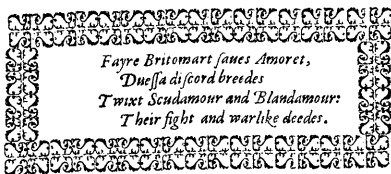 Fayre Britomart ſaues Amoret,
Dueſſa diſcord breedes
Twixt Scudamour and Blandamour:
Their fight and warlike deedes.